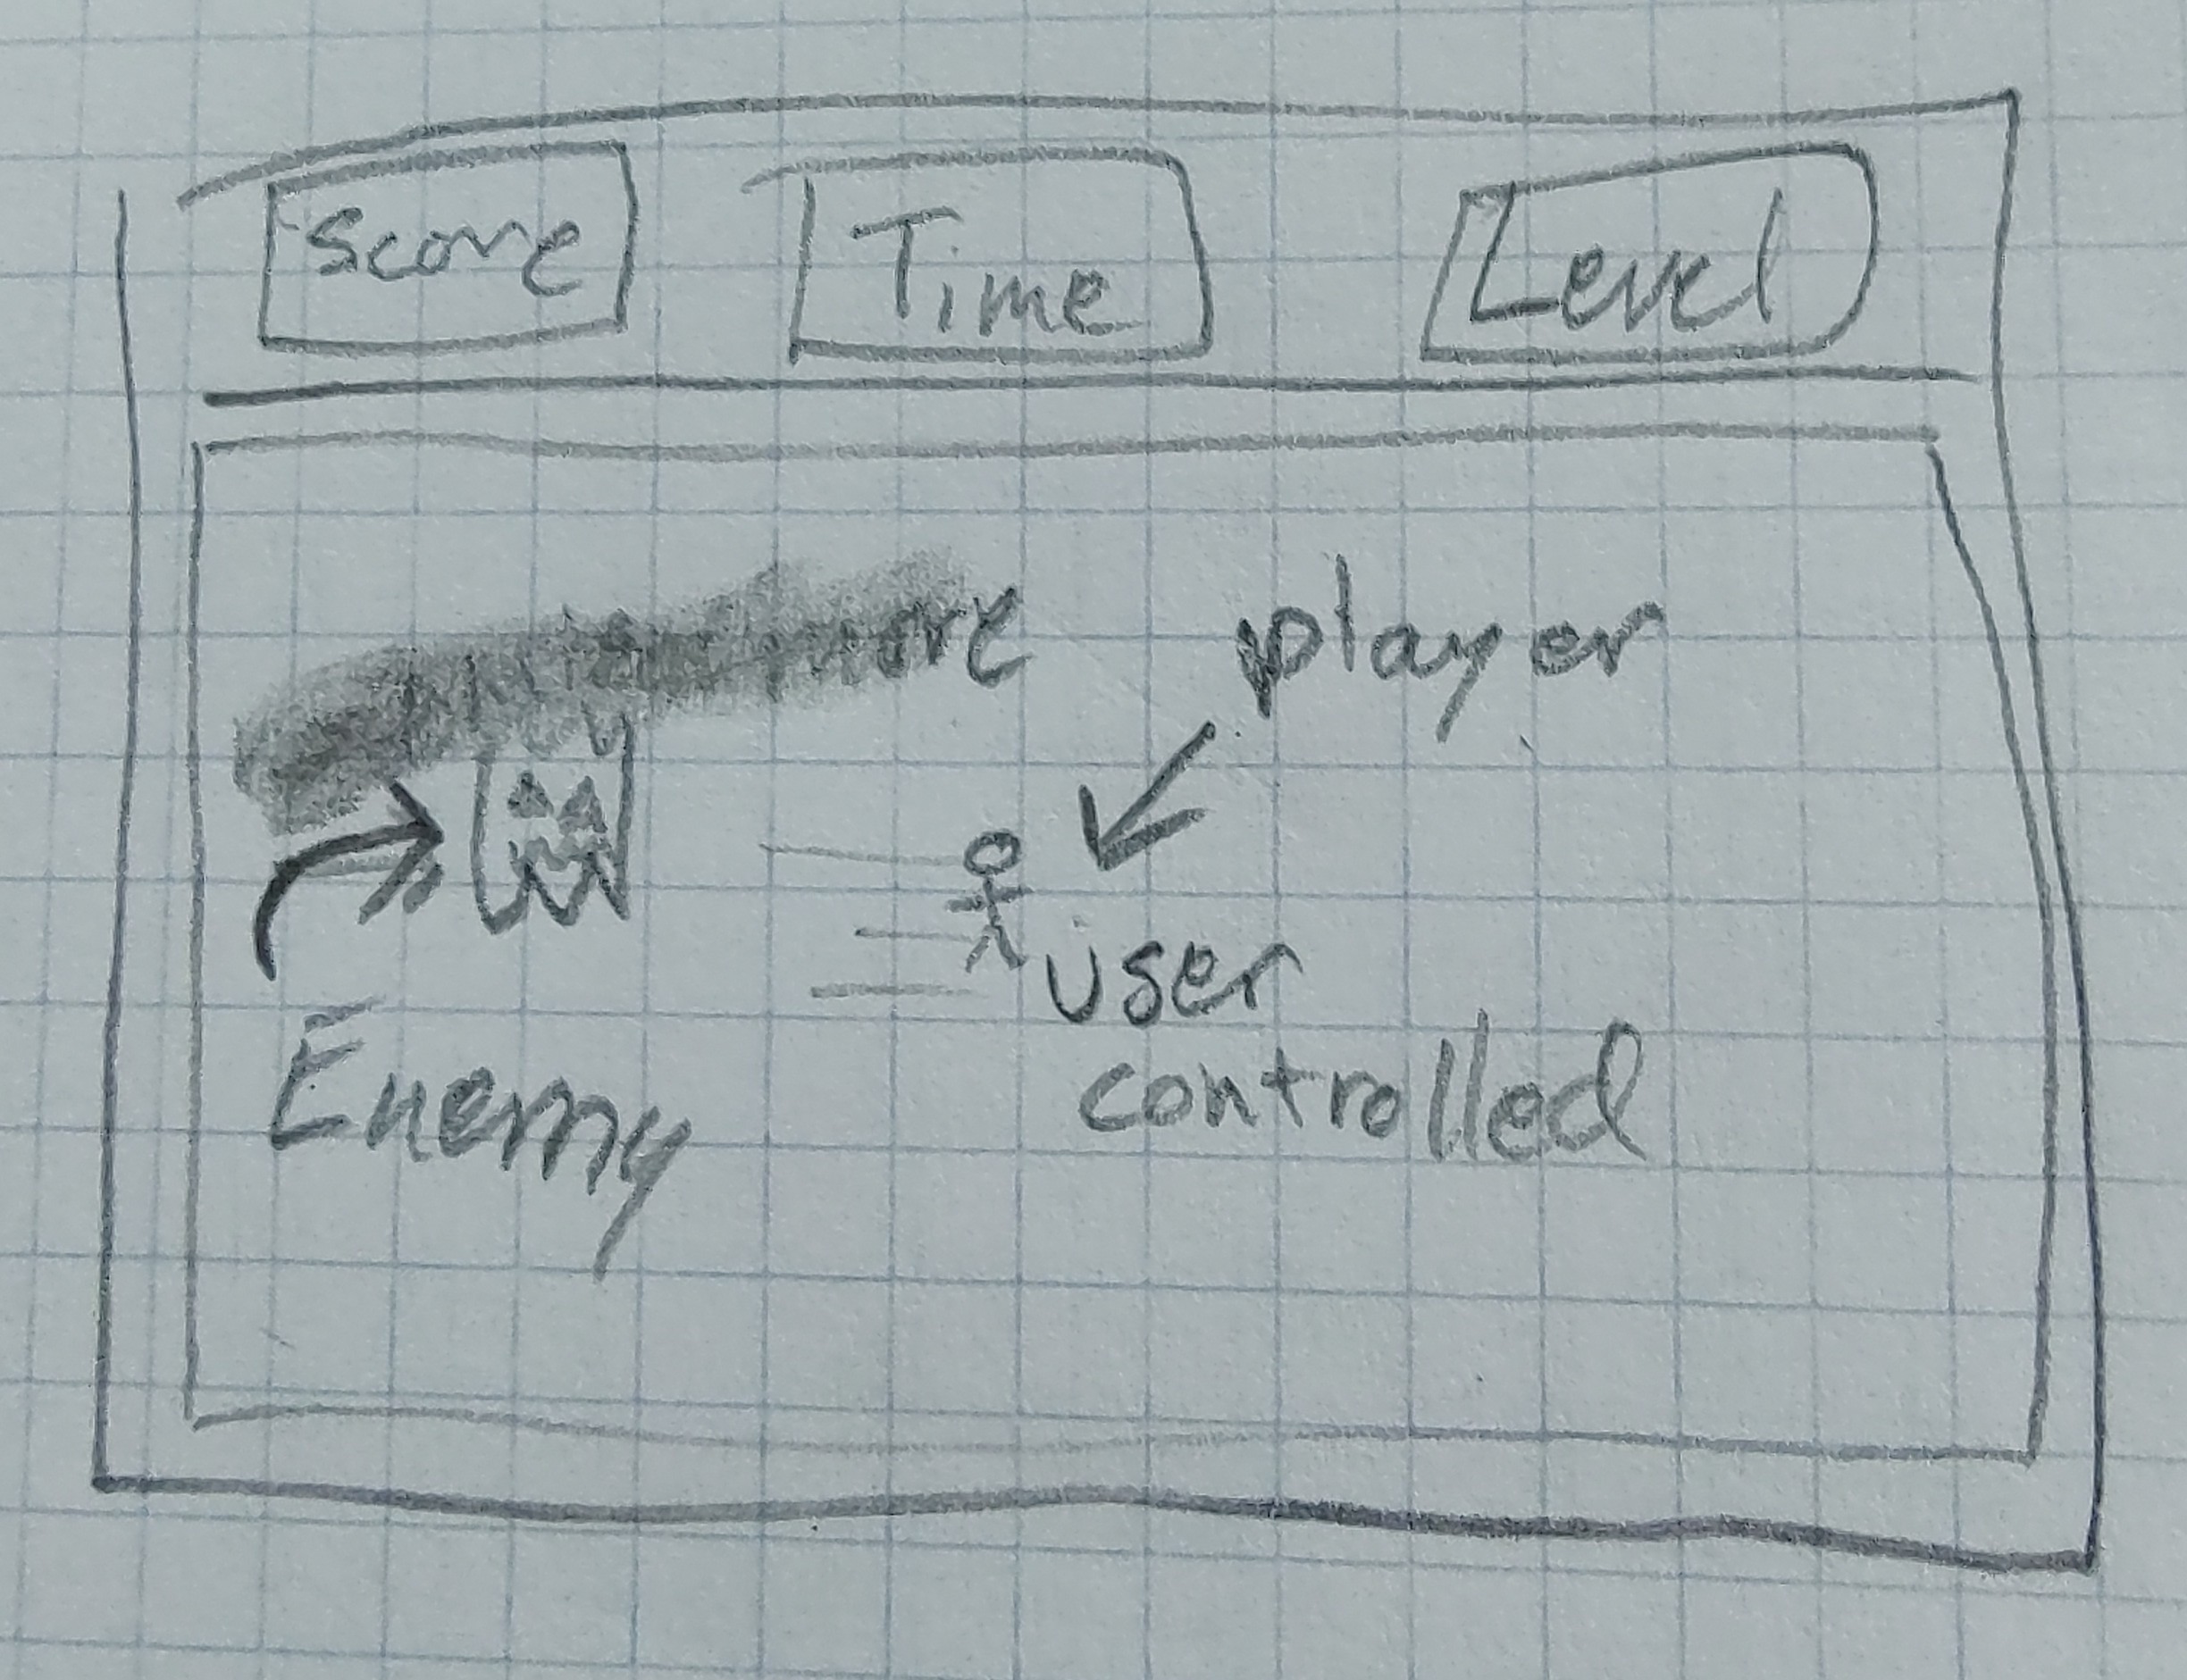 Score
Time
Level
player
user
controlled
Enemy